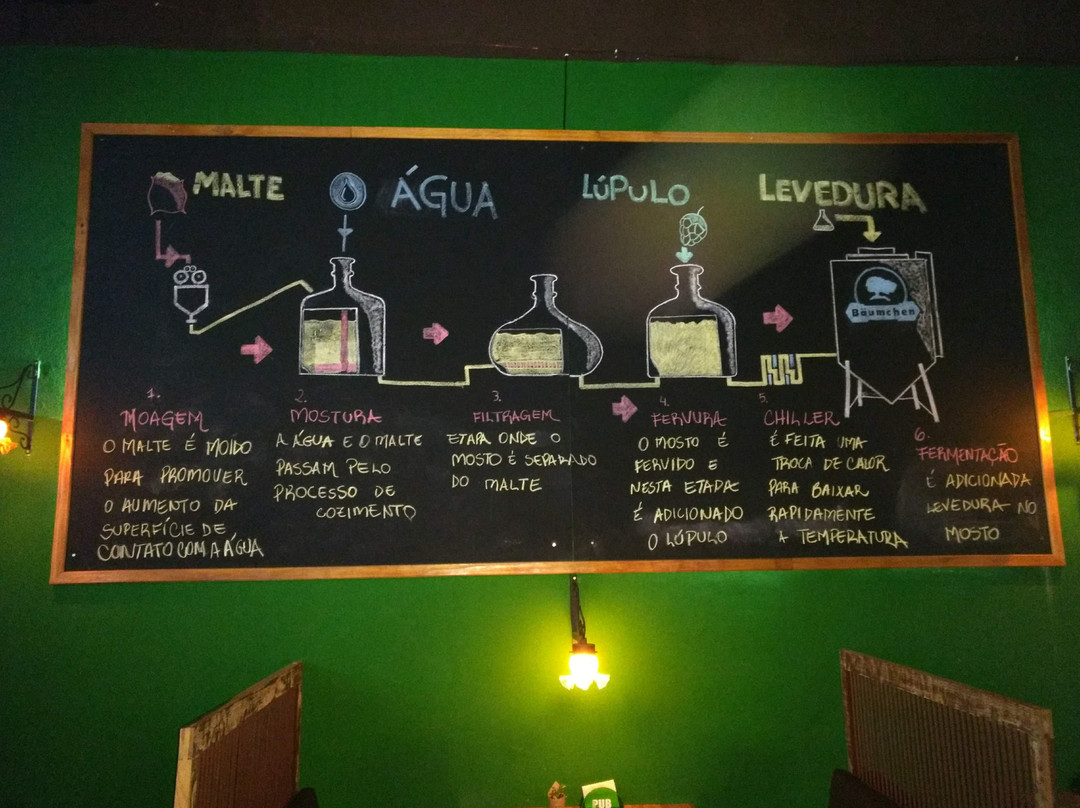 MALTE
ÁGUA
LÚPULO
LEVEDURA
Bäumchen
1.
MOAGEM
O MALTE É MOÍDO
PARA PROMOVER
O AUMENTO DA
SUPERFÍCIE DE
CONTATO COM A ÁGUA
2.
MOSTURA
A ÁGUA E O MALTE
PASSAM PELO
PROCESSO DE
COZIMENTO
3.
FILTRAGEM
ETAPA ONDE O
MOSTO É SEPARADO
DO MALTE
4.
FERVURA
O MOSTO É
FERVIDO E
NESTA ETAPA
É ADICIONADO
O LÚPULO
5.
CHILLER
É FEITA UMA
TROCA DE CALOR
PARA BAIXAR
RAPIDAMENTE
A TEMPERATURA
6.
FERMENTAÇÃO
É ADICIONADA
LEVEDURA NO
MOSTO
PUB